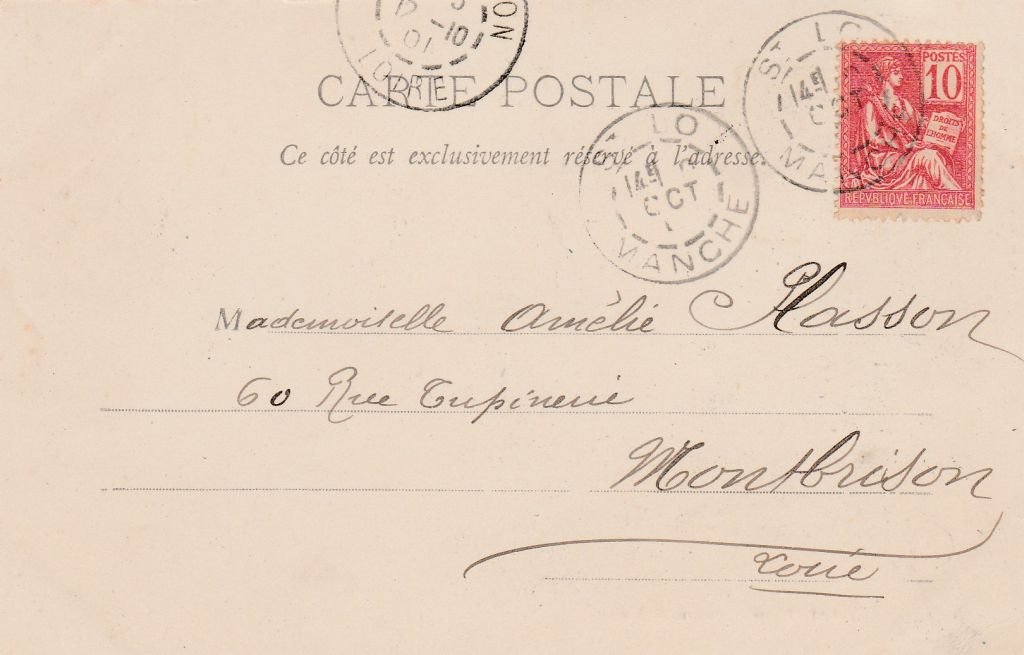 LOIRE
10
01
CARTE POSTALE
Ce côté est exclusivement réservé à l'adresse.
ST LO
OCT
MANCHE
ST LO
OCT
POSTES
10
DROITS
DE
L'HOMME
REPVBLIQVE FRANÇAISE
Mademoiselle Amélie Plasson
60 Rue Tupinerie
Montbrison
Loire